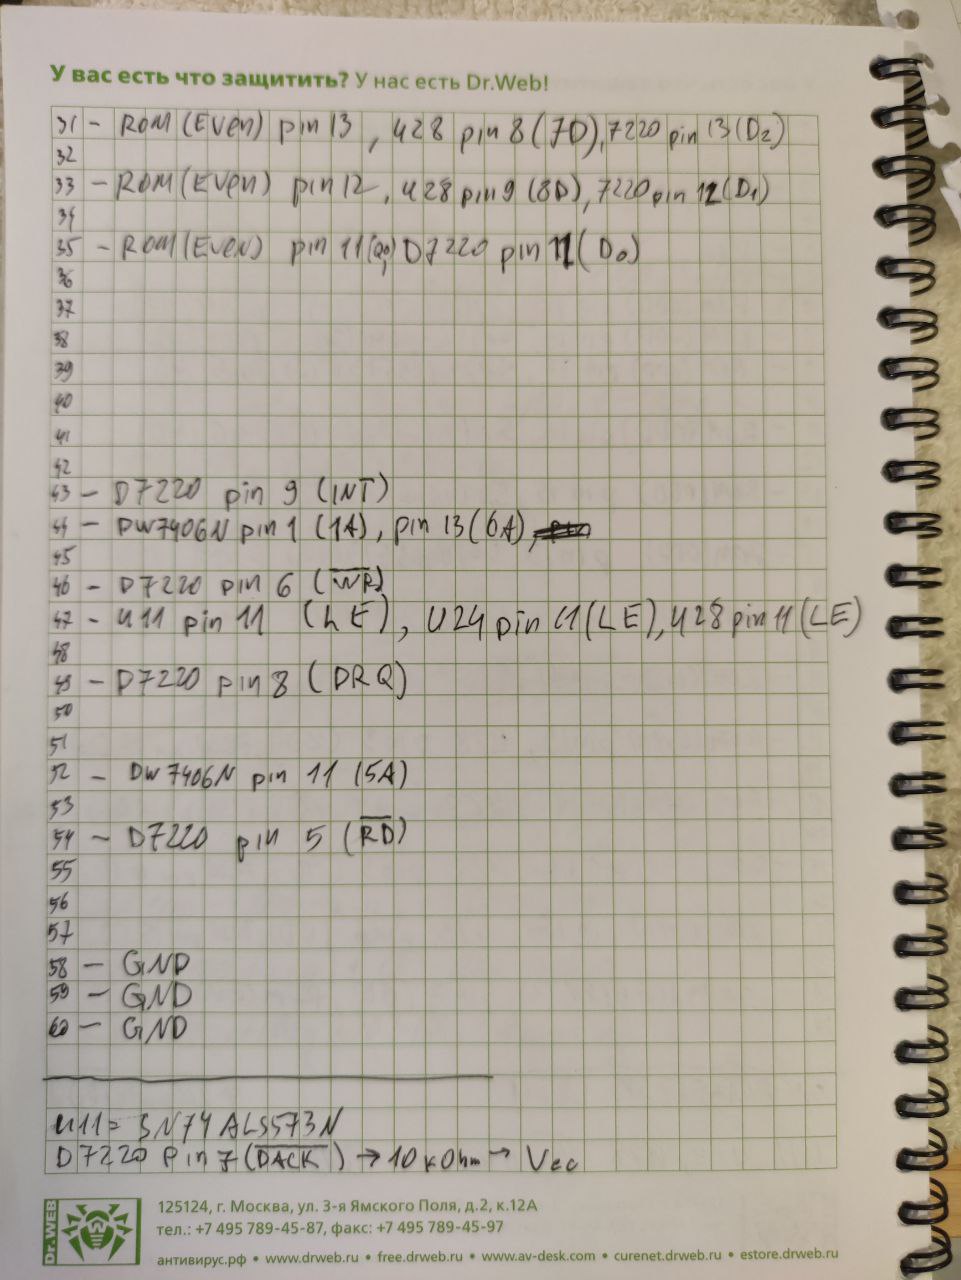 У вас есть что защитить? У нас есть Dr.Web!
31 - ROM (Even) pin 13, U28 pin 8 (7D), 7220 pin 13 (D2)
32
33 - ROM (Even) pin 12, U28 pin 9 (8D), 7220 pin 12 (D1)
34
35 - ROM (EveN) pin 11 (Q0) D7220 pin 11 (D0)
36
37
38
39
40
41
42
43 - D7220 pin 9 (INT)
44 - DW7406N pin 1 (1A), pin 13 (6A),
45
46 - D7220 pin 6 (W̅R̅)
47 - U11 pin 11 (LE), U24 pin 11 (LE), U28 pin 11 (LE)
48
49 - D7220 pin 8 (DRQ)
50
51
52 - DW7406N pin 11 (5A)
53
54 - D7220 pin 5 (R̅D̅)
55
56
57
58 - GND
59 - GND
60 - GND
U11 = SN74ALS573N
D7220 Pin 7 (D̅A̅C̅K̅) → 10 kOhm → Vcc
Dr.WEB
125124, г. Москва, ул. 3-я Ямского Поля, д.2, к.12А
тел.: +7 495 789-45-87, факс: +7 495 789-45-97
антивирус.рф • www.drweb.ru • free.drweb.ru • www.av-desk.com • curenet.drweb.ru • estore.drweb.ru